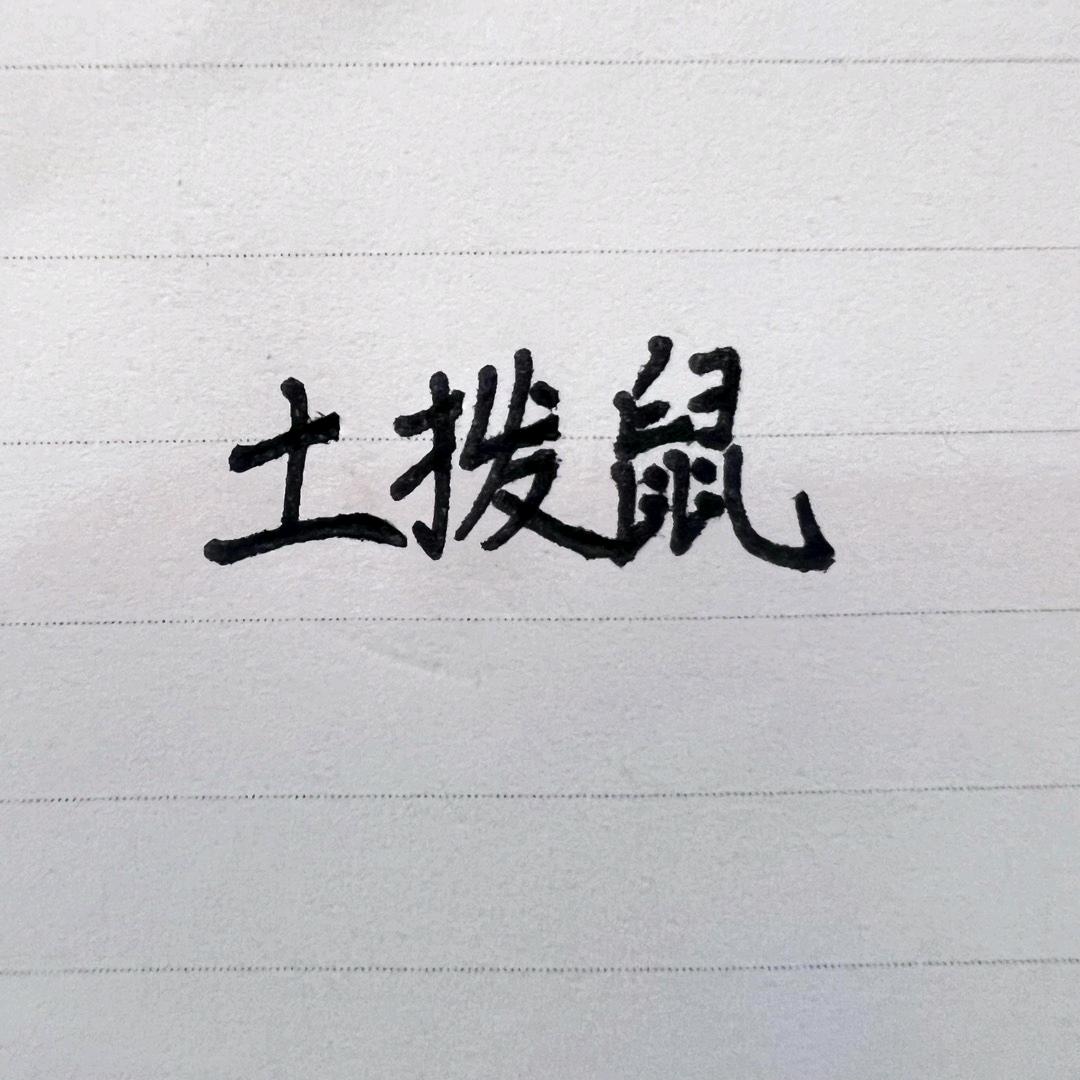 土拨鼠